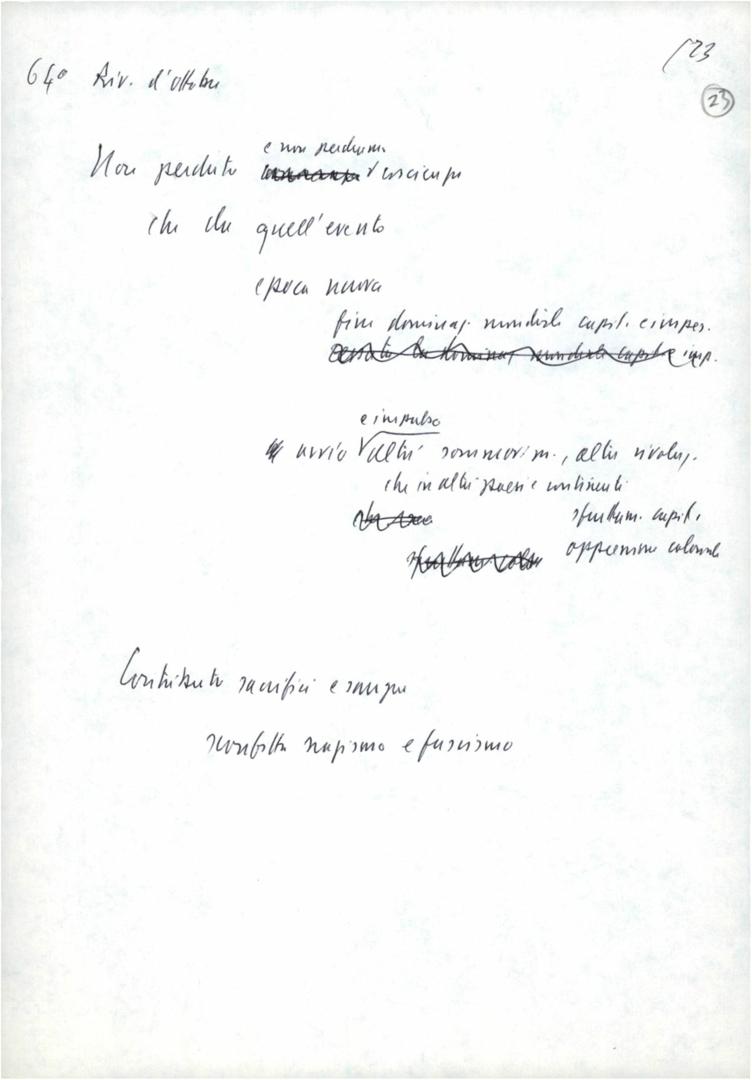 /23
23
64º Riv. d'Ottobre
e non perdiamo
Non perduto coscienza
che da quell'evento
epoca nuova
fine dominaz. mondiale capit. e imper.
cessata la dominaz. mondiale capital e imp.
e impulso
avvio altri sommovim., altre rivoluz.
che in altri paesi e continenti
sfruttam. capit.
oppressione coloniale
Contributo sacrifici e sangue
sconfitta nazismo e fascismo